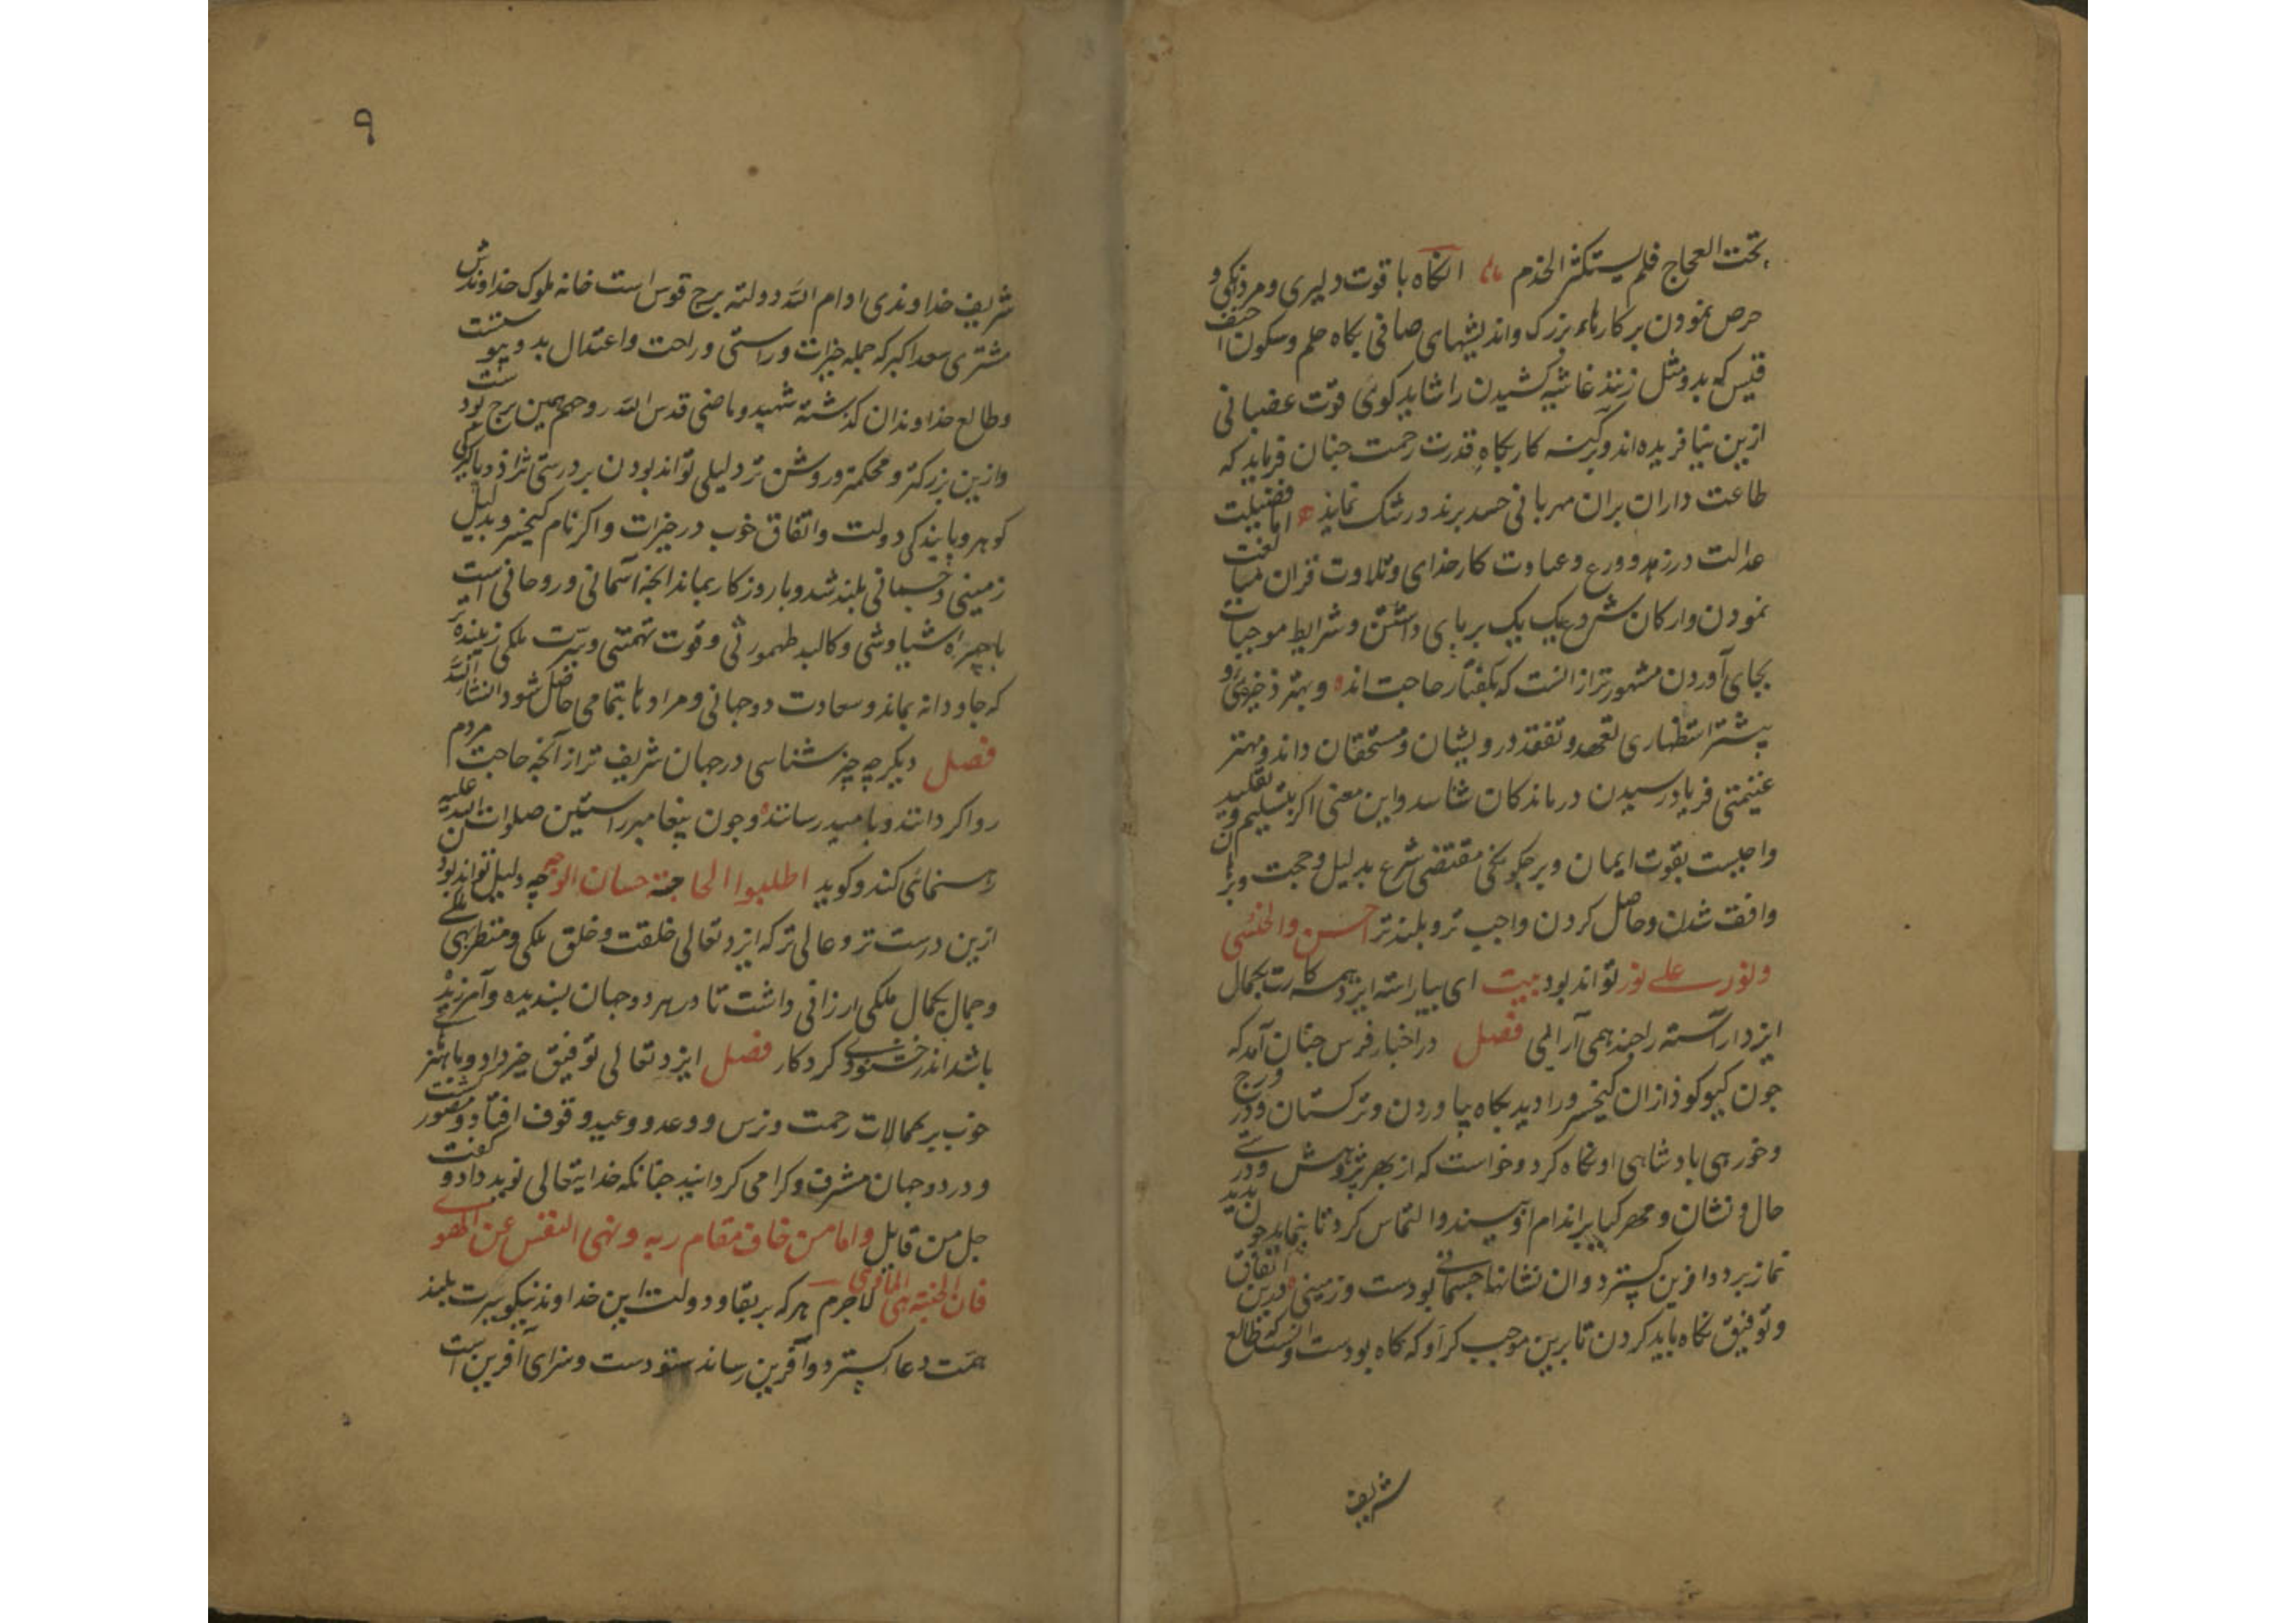 تحت العجاج فلم یستکثر الخذم انکاه با قوت دلیری و مردنکی و
حرص نمودن بر کارهاء بزرک و اندیشهای صافی بکاه حلم و سکون احنف
قیس که بدو مثل زنند غاشیه کشیدن را شاید کوئی قوت غضبانی
ازین نیافریده‌اند و کینه کار بکاه قدرت رحمت جنان فرماید که
طاعت داران بران مهربانی حسد برند و رشک نمایند اما فضیلت
عدالت در زهد و ورع و عبادت کار خدای و تلاوت قران
نمودن و ارکان شرع یک یک برپای داشتن و شرایط موجبات
بجای آوردن مشهورتر از انست که بکفتار حاجت اند و بهتر ذخیره‌ی و
بیشتر استظهاری تعهد و تفقد درویشان و مستحقان داند و مهتر
غنیمتی فریاد رسیدن درماندکان شناسد و این معنی اکر بتسلیم و تقلید
واجبست بقوت ایمان و بر جکونکی مقتضی شرع بدلیل و حجت و
واقف شدن و حاصل کردن واجب تر و بلندتر احسن و الحسنی
و نور علی نور تواند بود بیت ای بیاراسته ایزد همه کارت بجمال
ایزد اراسته را جند همی آرائی فصل در اخبار فرس جنان آمد که
جون کیو کوذازان کیخسرو را دید بکاه بیاوردن و ترکستان و در ورج
و خورهی بادشاهی او نکاه کرد و خواست که از بهر بژوهش و درستی
حال و نشان و مهر کیا بر اندام او ببیند و التماس کرد تا بنماید جون بدید
نماز برد و افرین کسترد و ان نشانها جسمانی بودست و زمینی درین اتفاق
و توفیق نکاه باید کردن تا برین موجب کرا و که کاه بودست و انست که طالع
شریف
۹
شریف خداوندی ادام الله دولته برج قوس است خانه ملوک خداوندش
مشتری سعد اکبر که جمله خیرات و راستی و راحت و اعتدال بدو پیوستست
و طالع خداوندان کذشته شهید و ماضی قدس الله روحهم همین برج بودست
و ازین بزرکتر و محکمتر و روشن تر دلیلی تواند بودن بر درستی نژاد و پاکی
کوهر و پایندکی دولت و اتفاق خوب در خیرات و اکر نام کیخسرو بدلیل
زمینی و جسمانی بلند شد و با روزکار بماند انجه آسمانی و روحانی است
با جهره سیاوشی و کالبد طهمورثی و قوت تهمتنی و سیرت ملکی زیبنده تر
که جاودانه بماند و سعادت دوجهانی و مرادها بتمامی حاصل شود انشاالله
فصل دیکر جه جیز شناسی در جهان شریف تر از آنجه حاجت مردم
روا کردانند و بامید رسانند و جون پیغامبر راستین صلوات الله علیه
رهنمائی کند و کوید اطلبوا الحاجة من حسان الوجه جه دلیل تواند بود
ازین درست تر و عالی تر که ایزد تعالی خلقت و خلق ملکی و منظر بهی
و جمال بکمال ملکی ارزانی داشت تا در هر دوجهان بسندیده و آمرزیده
باشد اندر خشنودی کردکار فصل ایزد تعالی توفیق خیر داد و با هنر
خوب بر کمالات رحمت و ترس و وعد و وعید وقوف افتاد و متصور کشت
و در دو جهان مشرف و کرامی کردانید جنانکه خدایتعالی نوید داد و کفت
جل من قایل و اما من خاف مقام ربه و نهی النفس عن الهوی
فان الجنة هی الماوی لاجرم هر که بر بقاء دولت این خداوند نیکو سیرت بلند
همت دعا کسترد و آفرین رساند ستودست و سزای آفرین است